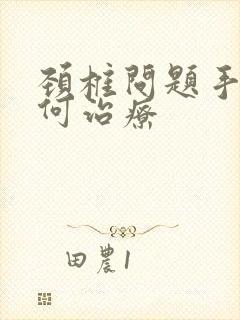 頚椎問題手
何治療
田農1